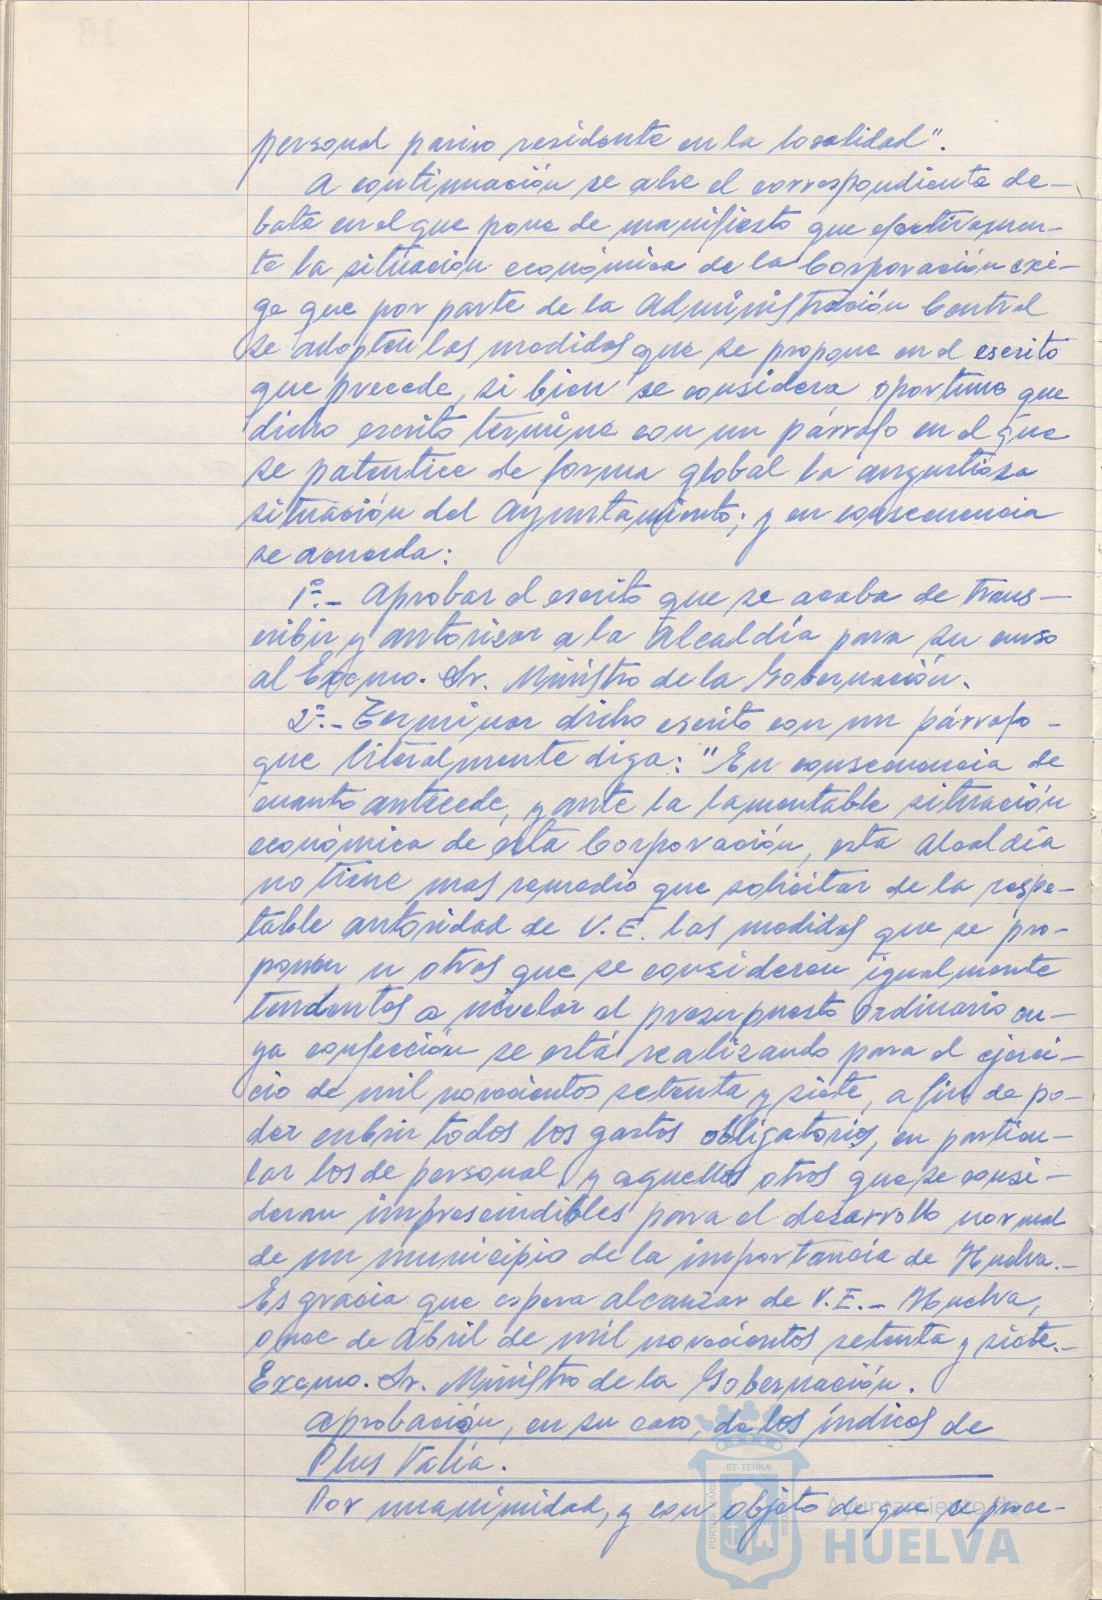 personal pasivo residente en la localidad".
A continuación se abre el correspondiente de-
bate en el que pone de manifiesto que efectivamen-
te la situación económica de la Corporación exi-
ge que por parte de la Administración Central
se adopten las medidas que se propone en el escrito
que precede, si bien se considera oportuno que
dicho escrito termine con un párrafo en el que
se patentice de forma global la angustiosa
situación del Ayuntamiento; y en consecuencia
se acuerda:
1º.- Aprobar el escrito que se acaba de trans-
cribir y autorizar a la Alcaldía para su curso
al Excmo. Sr. Ministro de la Gobernación.
2º.- Terminar dicho escrito con un párrafo -
que literalmente diga: "En consecuencia de
cuanto antecede, y ante la lamentable situación
económica de esta Corporación, esta Alcaldía
no tiene mas remedio que solicitar de la respe-
table autoridad de V.E. las medidas que se pro-
ponen u otras que se consideren igualmente
tendentes a nivelar el presupuesto ordinario cu-
ya confección se está realizando para el ejerci-
cio de mil novecientos setenta y siete, a fin de po-
der cubrir todos los gastos obligatorios, en particu-
lar los de personal, y aquellos otros que se consi-
deran imprescindibles para el desarrollo normal
de un municipio de la importancia de Huelva.-
Es gracia que espera alcanzar de V.E.- Huelva,
once de Abril de mil novecientos setenta y siete.-
Excmo. Sr. Ministro de la Gobernación.
Aprobación, en su caso, de los índices de
Plus Valía.
Por unanimidad, y con objeto de que se proce-
ET TERRAE
PORTUS MARIS
CUSTODIA
Ayuntamiento de
HUELVA